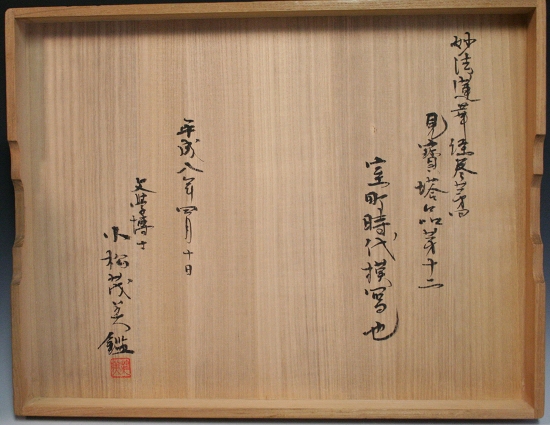 妙法蓮華経巻第四
見寳塔品第十一
室町時代模写也
平成八年四月十日
文学博士
小松茂美鑑